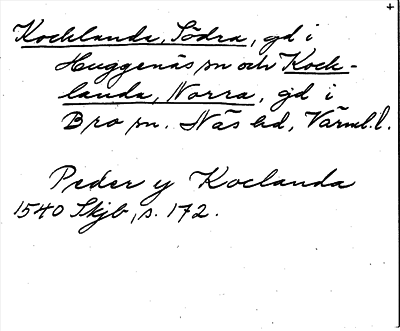 Kocklanda, Södra, gd i
Huggenäs sn och Kock-
landa, Norra, gd i
Bro sn. Näs hd, Värml. l.
Peder y Koclanda
1540 Skjb, s. 172.